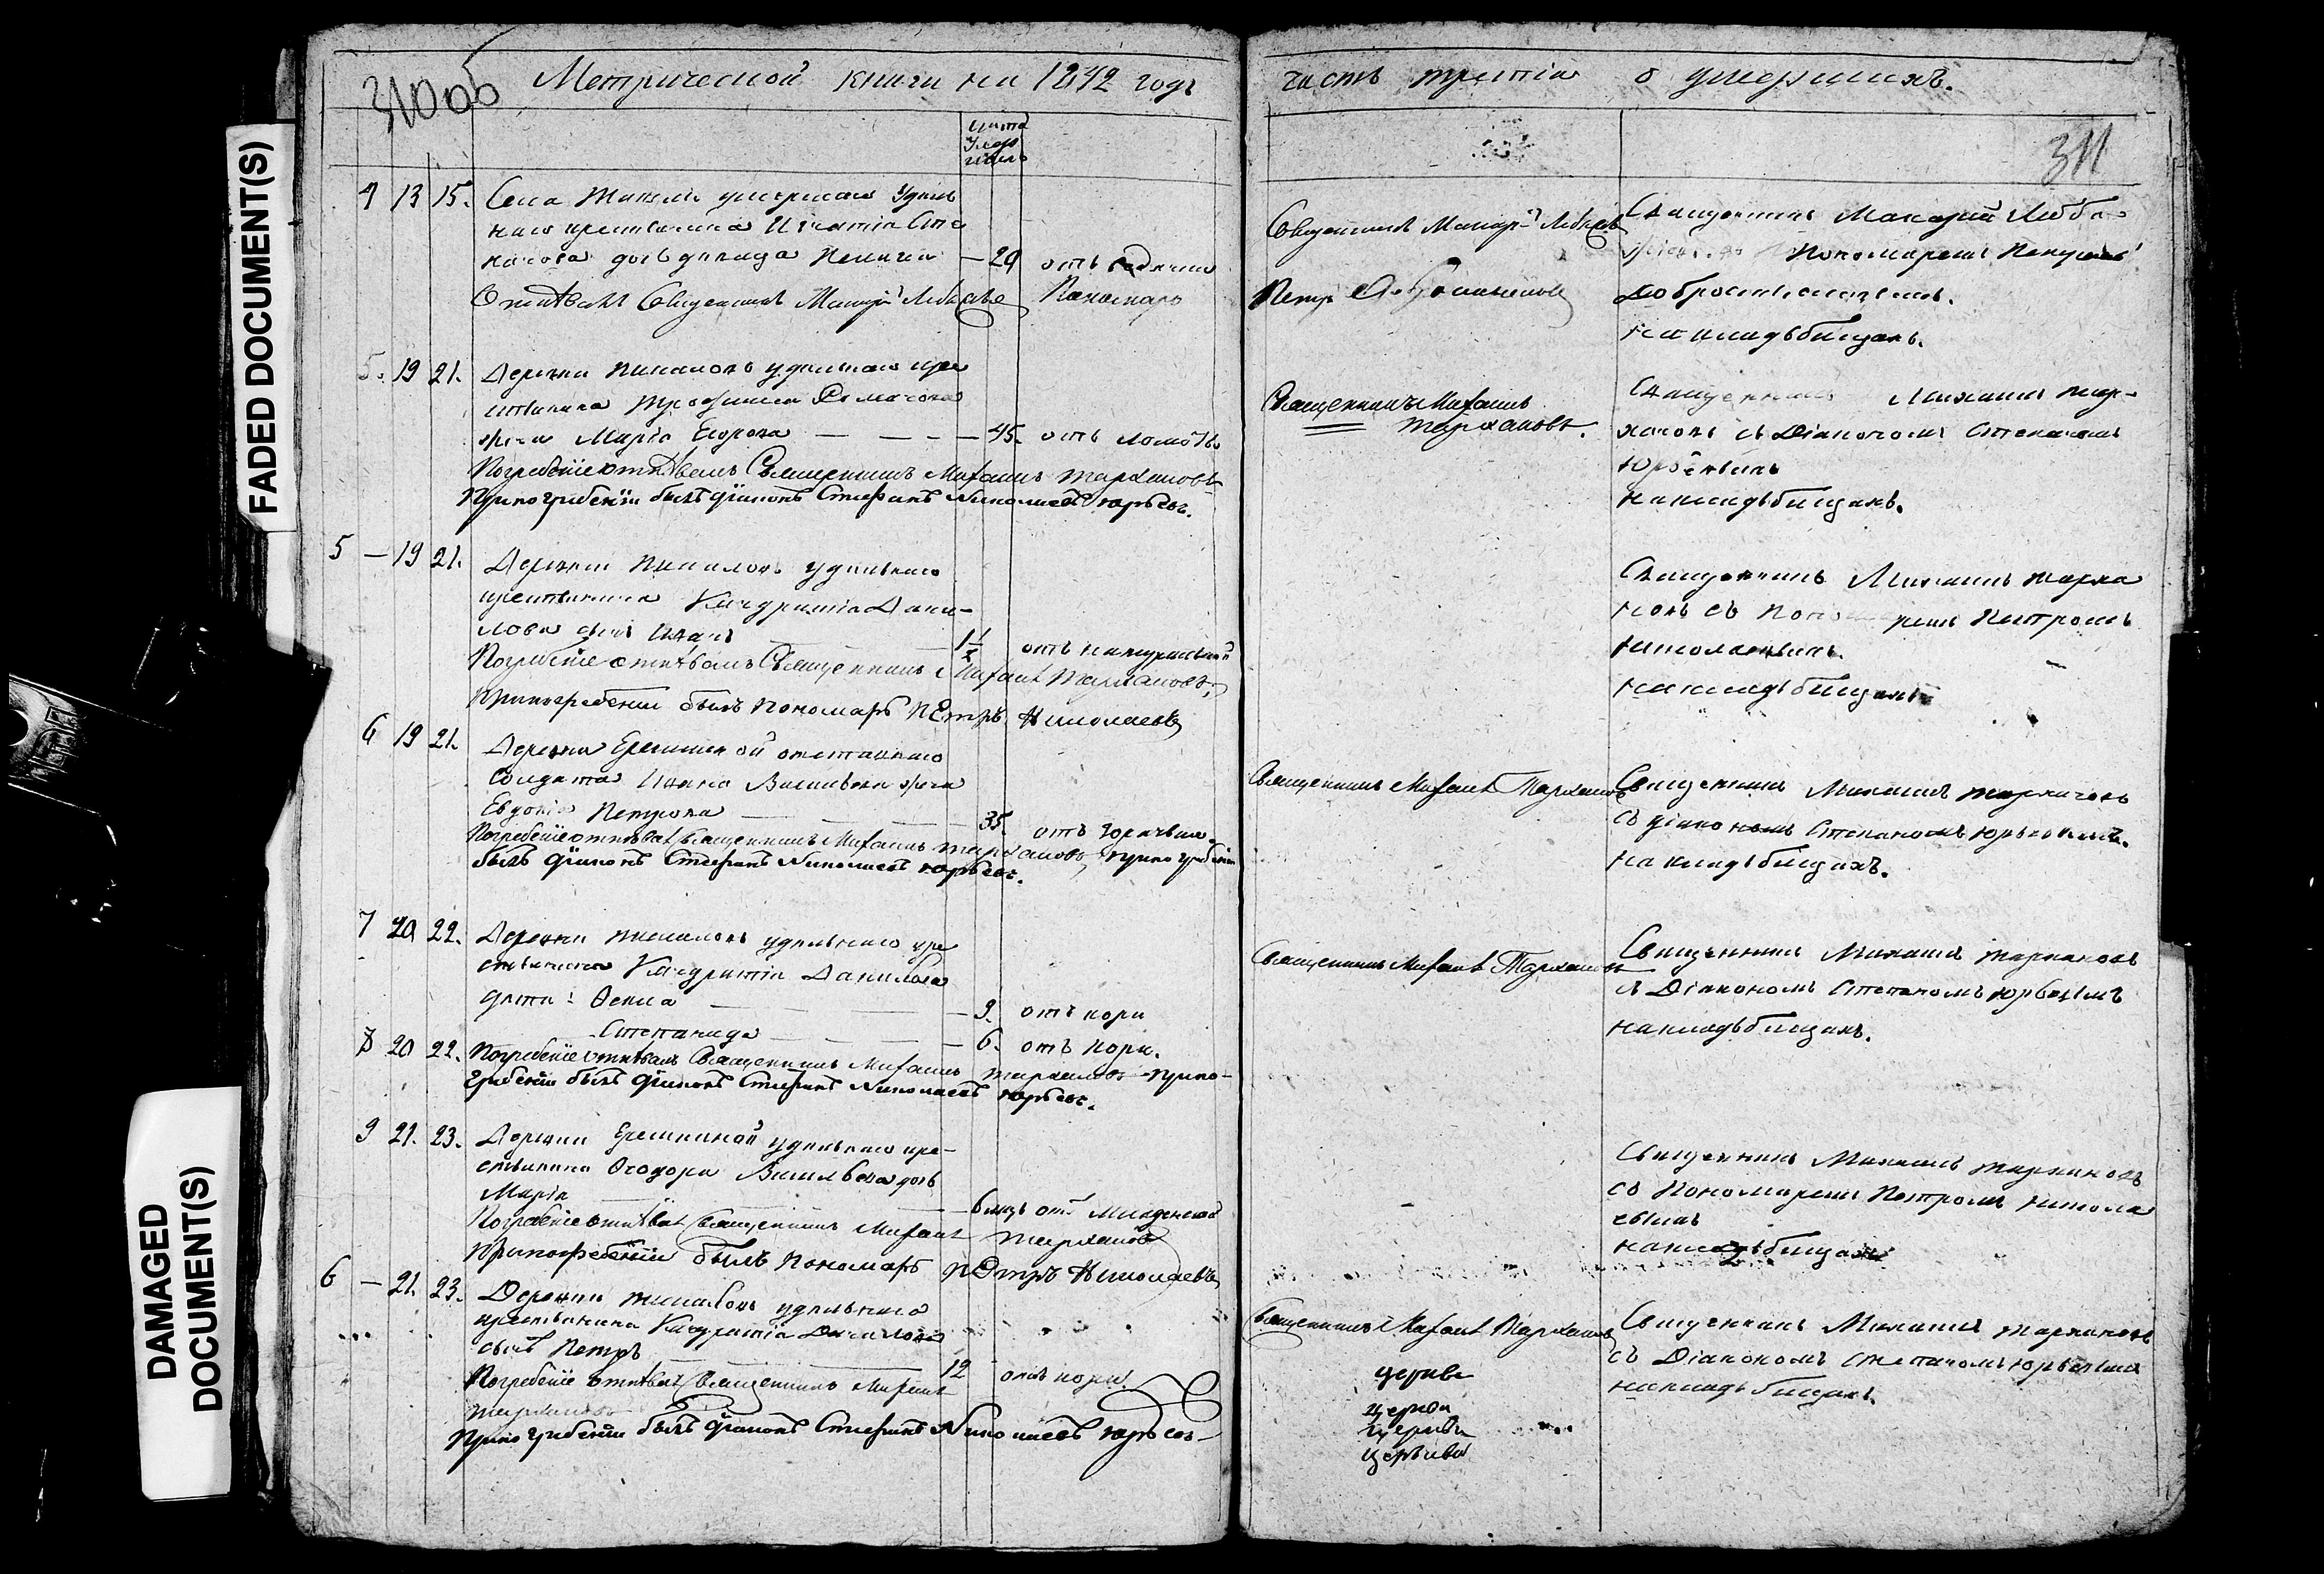 310об
Метрической книги на 1842 годъ
часть третiя о умершихъ.
311
FADED DOCUMENT(S)
DAMAGED
DOCUMENT(S)
лѣта
умер
4 13 15. Села удѣль
наго крестьянина Игнатiя Сте
панова дочь дѣвица Пелагея — 29 отъ
Отпѣвалъ Священникъ Макарiй Пономарь
Петръ
Священникъ Макарiй
Пономаремъ
на кладьбищахъ.
5. 19 21. Деревни удѣльнаго кре
стьянина Трофима
жена Марiя Егорова — — — 45. отъ ломоты
Погребенiе отпѣвалъ Священникъ Михаилъ Тархановъ
При погребенiи былъ дiаконъ Стефанъ Николаевъ Юрьевъ.
Священникъ Михаилъ
Тархановъ.
Священникъ Михаилъ Тар-
хановъ съ Дiакономъ Степаномъ
Юрьевымъ
на кладьбищахъ.
5 — 19 21. Деревни удѣльнаго
крестьянина Кандратiя Дани-
лова сынъ Иванъ 1 1/2 отъ натуральной
Погребенiе отпѣвалъ Священникъ Михаилъ Тархановъ,
При погребенiи былъ пономарь Петръ Николаевъ
Священникъ Михаилъ Тарха
новъ съ Петромъ
Николаевымъ.
на кладьбищахъ
6 19 21. Деревни отставнаго
солдата Ивана Васильева жена
Евдокiя Петрова 35. отъ горячьки
Погребенiе отпѣвалъ Священникъ Михаилъ Тархановъ, при погребенiи
былъ дiаконъ Стефанъ Николаевъ Юрьевъ.
Священникъ Михаилъ Тархановъ
Священникъ Михаилъ Тархановъ
съ дiакономъ Степаномъ Юрьевымъ.
на кладьбищахъ.
7 20 22. Деревни удѣльнаго кре
стьянина Кандратiя Данилова
дѣти: Фекла — 9. отъ кори
Степанида — 6. отъ кори.
8 20 22. Погребенiе отпѣвалъ Священникъ Михаилъ Тархановъ при по-
гребенiи былъ дiаконъ Стефанъ Николаевъ Юрьевъ.
Священникъ Михаилъ Тархановъ
Священникъ Михаилъ Тархановъ
съ Дiакономъ Степаномъ Юрьевымъ
на кладьбищахъ.
9 21. 23. Деревни удѣльнаго кре-
стьянина Феодора Васильева дочь
Марiя 6 мцъ отъ младенской
Погребенiе отпѣвалъ Священникъ Михаилъ Тархановъ
При погребенiи былъ пономарь Петръ Николаевъ
Священникъ Михаилъ Тархановъ
съ Пономаремъ Петромъ Никола
евымъ
на кладьбищахъ
6 — 21. 23. Деревни удѣльнаго
крестьянина Кандратiя Данилова
сынъ Петръ 12 отъ кори
Погребенiе отпѣвалъ Священникъ Михаилъ
Тархановъ
При погребенiи былъ дiаконъ Стефанъ Николаевъ Юрьевъ
Священникъ Михаилъ Тархановъ
Священникъ Михаилъ Тархановъ
съ Дiакономъ Степаномъ Юрьевымъ
на кладьбищахъ.